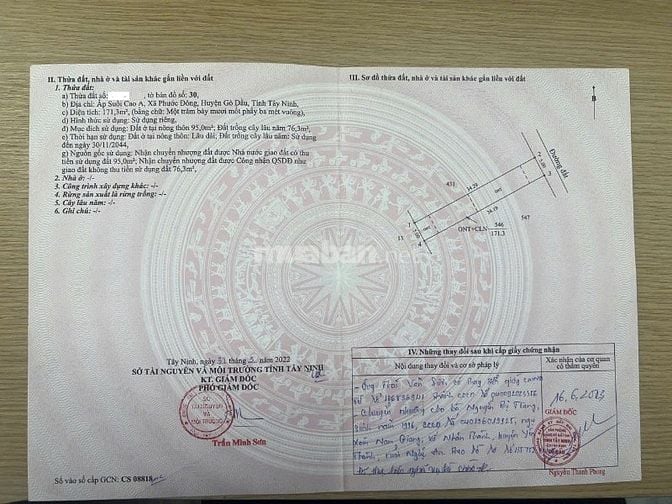 II. Thửa đất, nhà ở và tài sản khác gắn liền với đất
1. Thửa đất:
a) Thửa đất số: , tờ bản đồ số: 30,
b) Địa chỉ: Ấp Suối Cao A, Xã Phước Đông, Huyện Gò Dầu, Tỉnh Tây Ninh,
c) Diện tích: 171,3m², (bằng chữ: Một trăm bảy mươi mốt phẩy ba mét vuông),
d) Hình thức sử dụng: Sử dụng riêng,
đ) Mục đích sử dụng: Đất ở tại nông thôn 95,0m²; Đất trồng cây lâu năm 76,3m²,
e) Thời hạn sử dụng: Đất ở tại nông thôn: Lâu dài; Đất trồng cây lâu năm: Sử dụng
đến ngày 30/11/2044,
g) Nguồn gốc sử dụng: Nhận chuyển nhượng đất được Nhà nước giao đất có thu
tiền sử dụng đất 95,0m²; Nhận chuyển nhượng đất được Công nhận QSDĐ như
giao đất không thu tiền sử dụng đất 76,3m².
2. Nhà ở: -/-
3. Công trình xây dựng khác: -/-
4. Rừng sản xuất là rừng trồng: -/-
5. Cây lâu năm: -/-
6. Ghi chú: -/-
Tây Ninh, ngày 31 tháng 5 năm 2022
SỞ TÀI NGUYÊN VÀ MÔI TRƯỜNG TỈNH TÂY NINH
KT. GIÁM ĐỐC
PHÓ GIÁM ĐỐC
SỞ
TÀI NGUYÊN
VÀ
MÔI TRƯỜNG
Trần Minh Sơn
Số vào sổ cấp GCN: CS 08818
III. Sơ đồ thửa đất, nhà ở và tài sản khác gắn liền với đất
B
Đường đất
451
34.29
2
5.00
3
547
34.19
1
5.00
4
13
ONT+CLN
546
171.3
muaban.net
IV. Những thay đổi sau khi cấp giấy chứng nhận
Nội dung thay đổi và cơ sở pháp lý
Xác nhận của cơ quan
có thẩm quyền
chuyển nhượng cho bà Nguyễn Thị
sinh năm 1996, CCCD số
16.6.2023
GIÁM ĐỐC
Nguyễn Thanh Phong